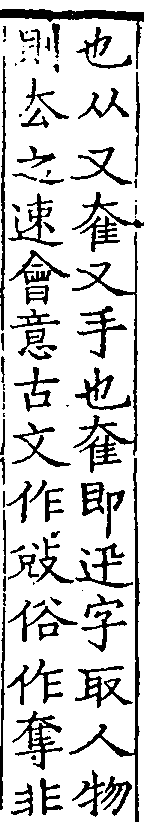 也从又奞又手也奞即迅字取人物
則厺之速會意古文作敓俗作奪非